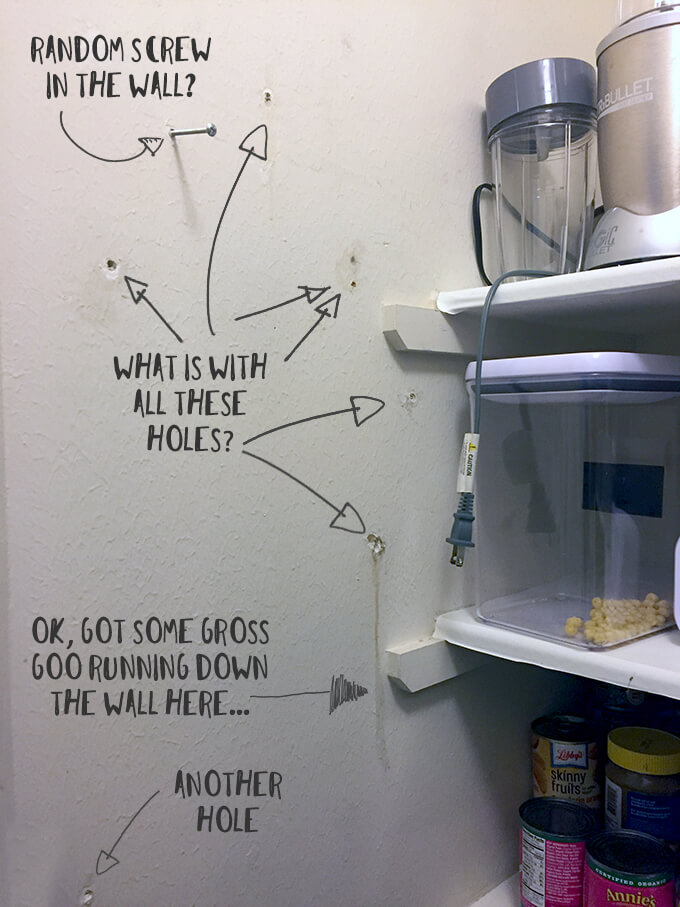 RANDOM SCREW
IN THE WALL?
BULLET
WHAT IS WITH
ALL THESE
HOLES?
CAUTION
OK, GOT SOME GROSS
GOO RUNNING DOWN
THE WALL HERE...
Libby's
skinny
fruits
ANOTHER
HOLE
CERTIFIED ORGANIC
Annie's